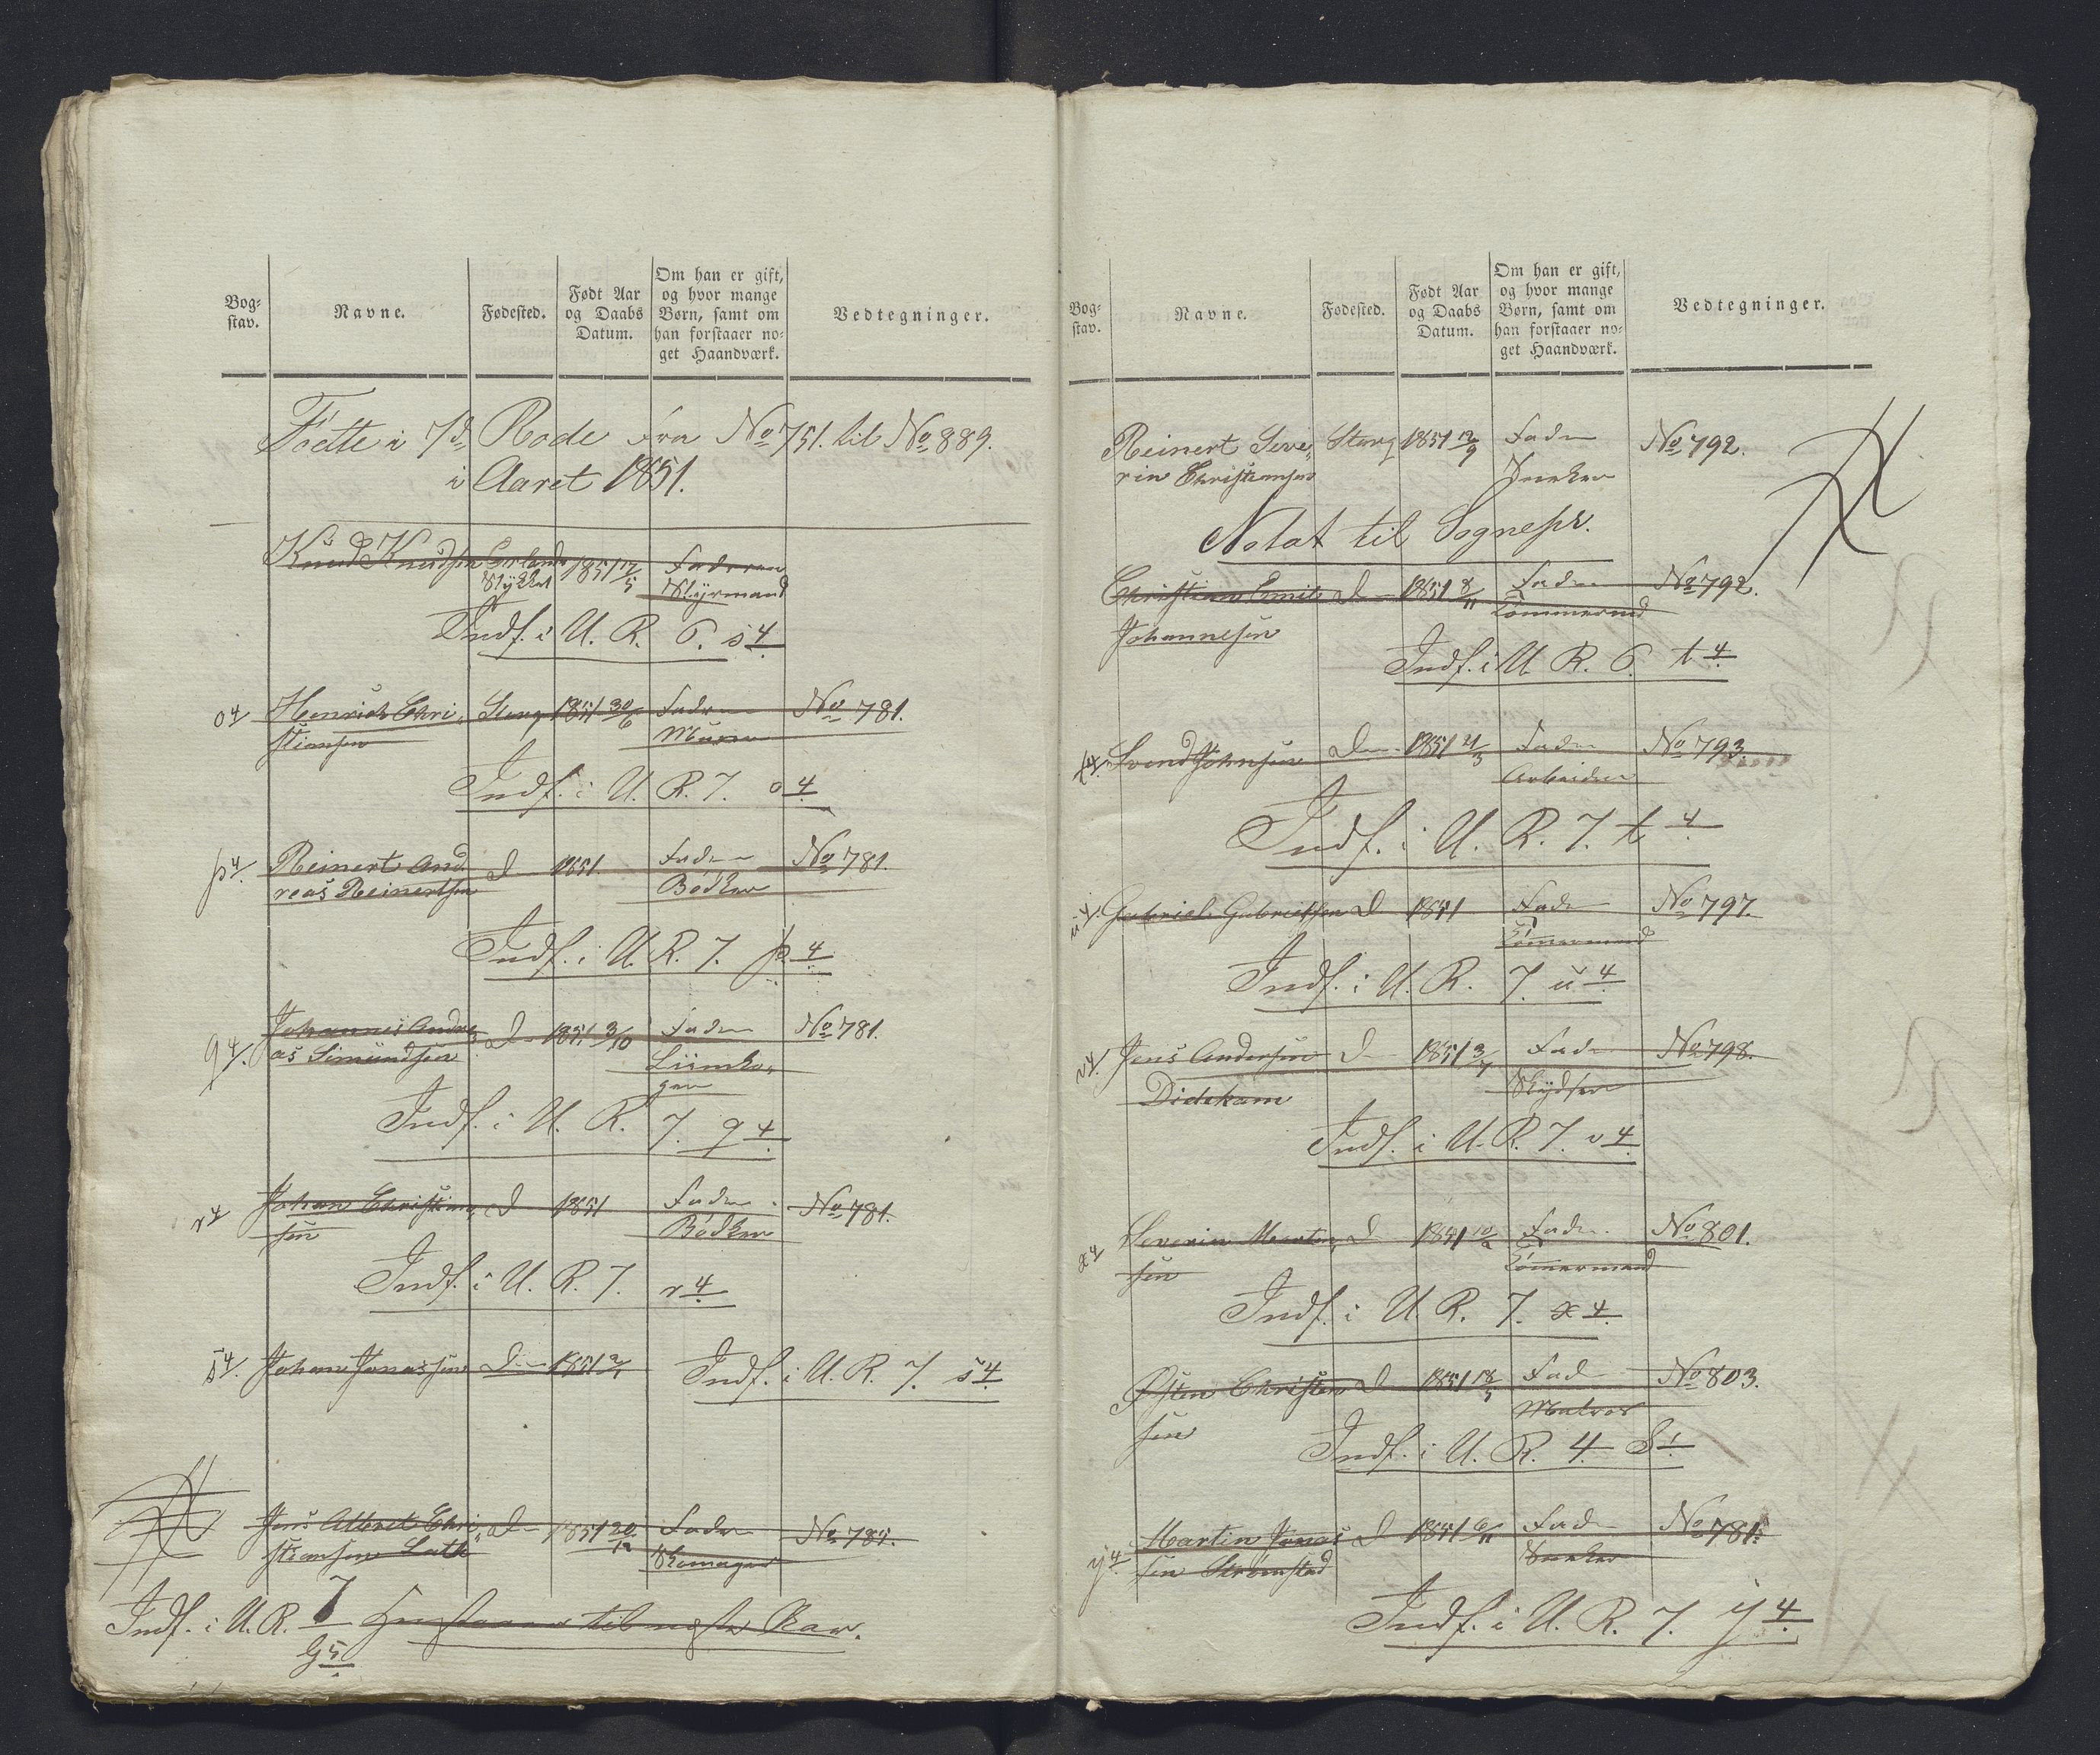 Bog-
stav.
Navne.
Fødested.
Født Aar
og Daabs
Datum.
Om han er gift,
og hvor mange
Børn, samt om
han forstaaer no-
get Haandværk.
Vedtegninger.
Fødte i 7de Rode fra No 751. til No 889.
i Aaret 1851.
Knud Knudsen 1851 17/5 Fader
Stykket Styrmand
Indf. i U. R. 6. s 4.
o 4 Henrich Chri- Stavg 1851 30/6 Fader No 781.
stiansen Murer
Indf. i U. R. 7. o 4.
p 4. Reinert And- d 1851 Fader No 781.
reas Reinertsen Bødker
Indf. i U. R. 7. p 4.
q 4. Johannes Andre- d 1851 3/10 Fader No 781.
as Simundsen Liimko-
ger
Indf. i U. R. 7. q 4.
r 4 Johan Christian- d 1851 Fader No 781.
sen Bødker
Indf. i U. R. 7. r 4.
s 4. Johan Jonassen d 1851 Indf. i U. R. 7. s 4.
Jens Albret Chri- d 1851 20/12 Fader No 785.
stiansen Skomager
Indf. i U. R. 7 til næste Aar.
G 5.
Bog-
stav.
Navne.
Fødested.
Født Aar
og Daabs
Datum.
Om han er gift,
og hvor mange
Børn, samt om
han forstaaer no-
get Haandværk.
Vedtegninger.
Reinert Seve- Stavg 1851 12/9 Fader No 792.
rin Christiansen Sneker
Notat til Sognepr.
Christian Emil d 1851 8/11 Fader No 792.
Johannesen Tømmermd
Indf. i U. R. 6. t 4.
t 4. Svend Johnsen d 1851 21/3 Fader No 793.
Arbeider
Indf. i U. R. 7. t 4.
u 4. Gabriel Gabrielsen d 1851 Fader No 797.
Tømmermand
Indf. i U. R. 7. u 4.
v 4. Jens Andersen d 1851 3/7 Fader No 798.
Didekam Skydser
Indf. i U. R. 7. v 4.
x 4 Severin Morten- d 1851 Fader No 801.
sen Tømmermand
Indf. i U. R. 7. x 4.
Østen Christen- d 1851 18/5 Fader No 803.
sen Matros
Indf. i U. R. 4.
y 4. Martin Jonas- d 1851 6/11 Fader No 781.
sen Strømstad Sneker
Indf. i U. R. 7. y 4.